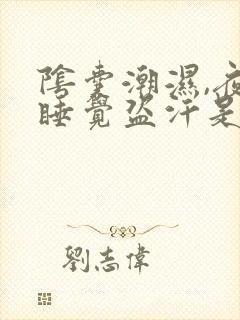 陰囊潮濕,夜
睡覺盜汗是
劉志偉